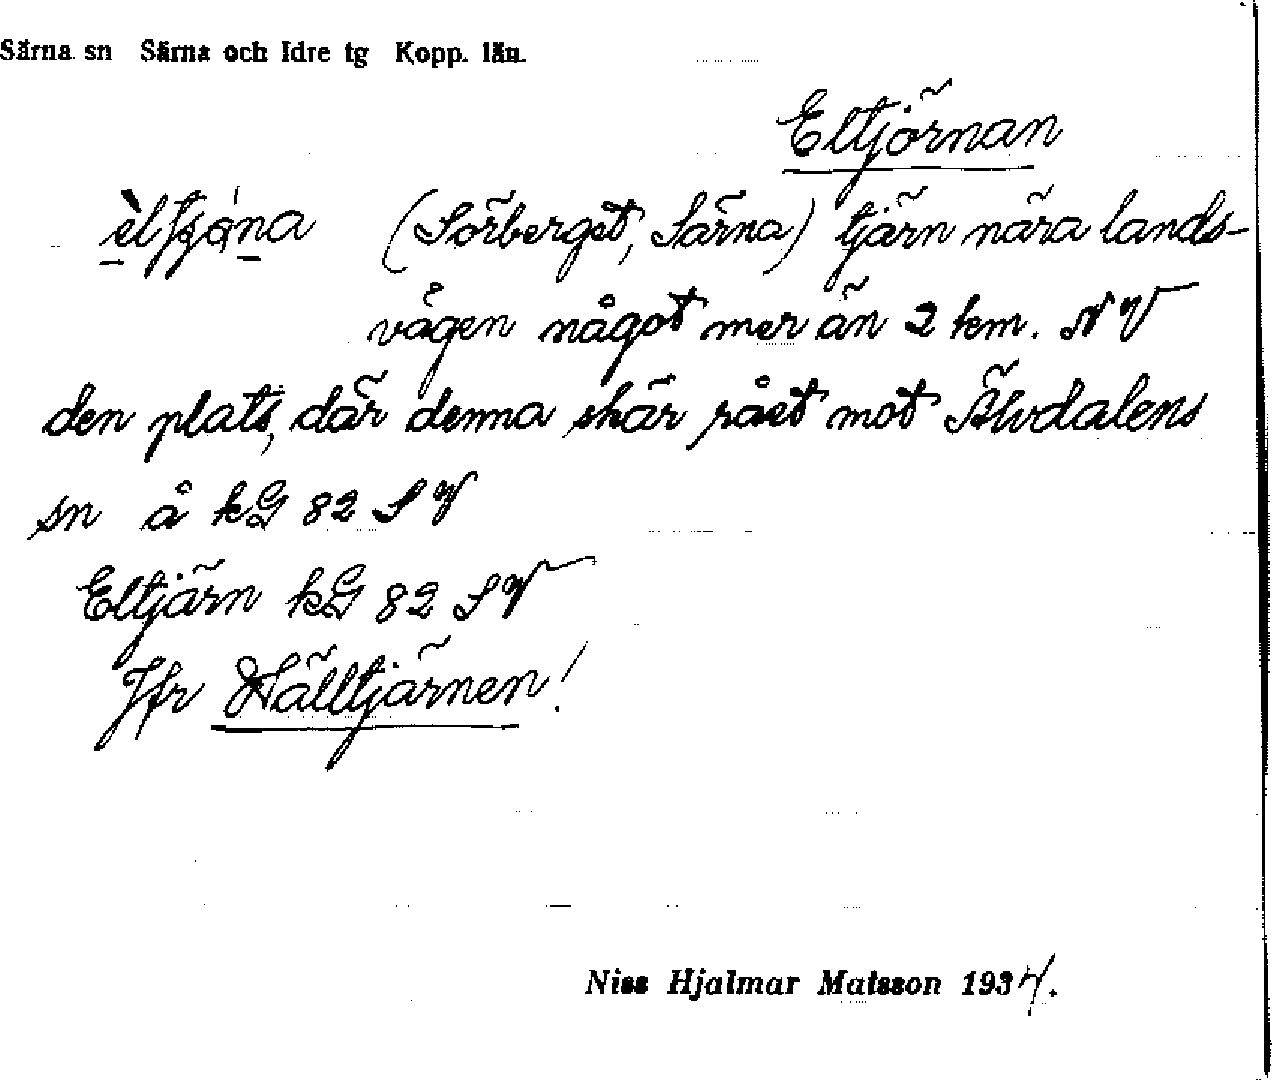 Särna sn Särna och Idre tg Kopp. län.
Eltjörnan
(Sörberget, Särna) tjärn nära lands-
vägen något mer än 2 km. NV
den plats, där denna skär rået mot Älvdalens
sn å kG 82 SV
Eltjärn kG 82 SV
Jfr Hälltjärnen!
Niss Hjalmar Matsson 1934.